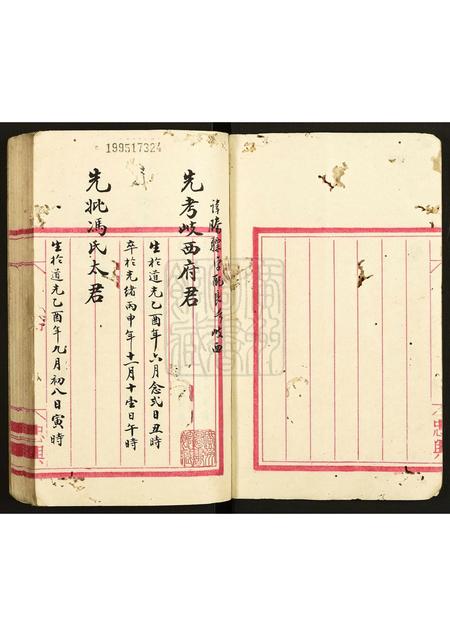 199517324
先考岐西府君
諱 字 岐西
生於道光乙酉年六月念弍日丑時
卒於光緒丙申年十一月十壹日午時
先妣馮氏太君
生於道光乙酉年九月初八日寅時
忠興
忠興